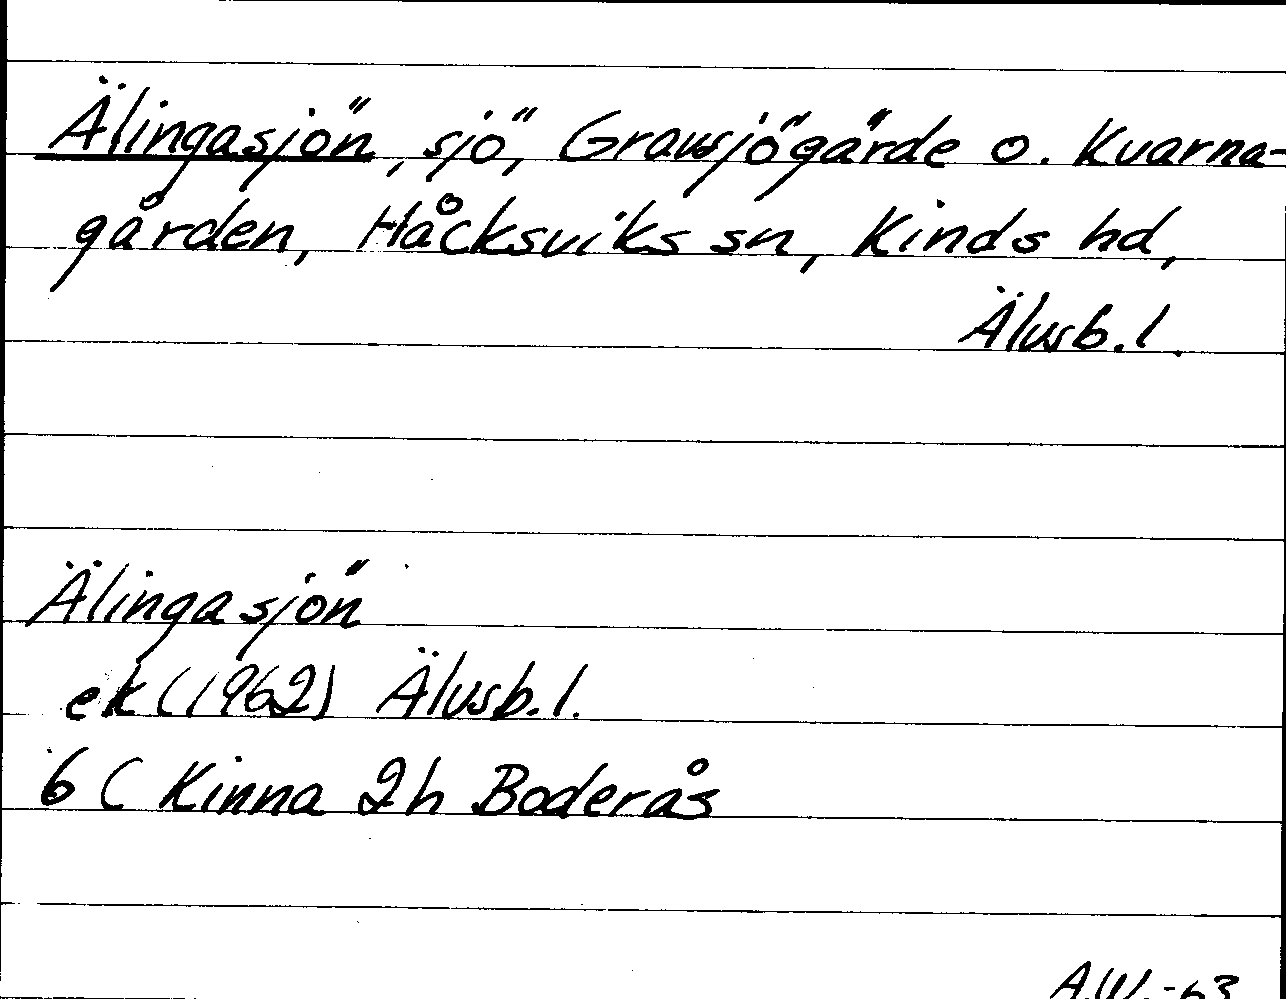 Älingasjön, sjö, Gravsjögärde o. Kvarna-
gården, Håcksviks sn, Kinds hd,
Älvsb. l.
Älingasjön
ek (1962) Älvsb. l.
6 C Kinna 2h Boderås
A.W. -63